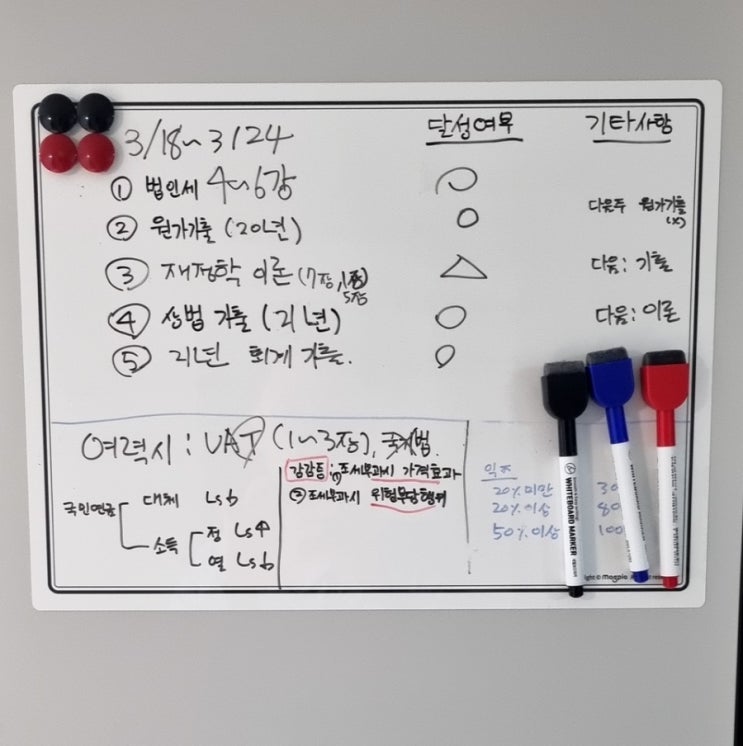 3/18~3/24 달성여부 기타사항
① 법인세 4~6강 ○
② 원가기출 (20년) ○ 다음주 원가기출 (x)
③ 재정학 이론 (7장, 5장) △ 다음: 기출
④ 상법 기출 (21년) ○ 다음: 이론
⑤ 21년 회계 기출. ○
여력시 : VAT (1~3장), 국기법.
국민연금 대체 Ls↓
소득 점 Ls↑
열 Ls↓
감감등 : ① 조세부과시 가격효과
② 조세부과시 위험부담행위
20% 미만 30
20% 이상 80
50% 이상 100
WHITEBOARD MARKER
Magpie